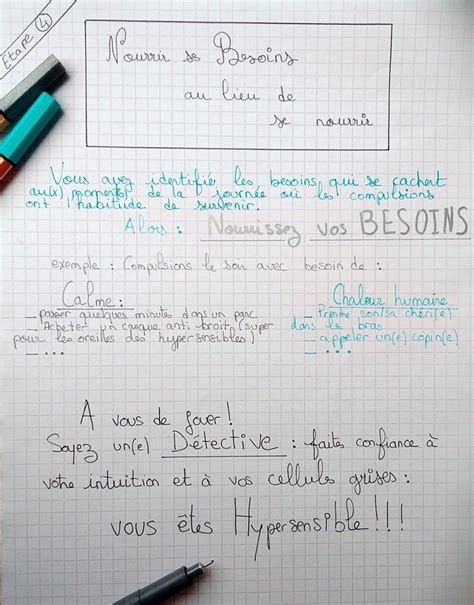 Etape 4
Nourrir se Besoins
au lieu de
se nourrir
Vous avez identifié les besoins qui se cachent
au(x) moment(s) de la journée où les compulsions
ont l'habitude de survenir.
Alors : Nourrissez vos BESOINS
exemple : Compulsions le soir avec besoin de :
Calme :
_ passer quelques minutes dans un parc
_ Acheter un casque anti bruit (super
pour les oreilles des hypersensibles)
_ ...
Chaleur humaine
_ Prendre son/sa chéri(e)
dans les bras
_ appeler un(e) copin(e)
_ ...
A vous de jouer !
Soyez un(e) Détective : faites confiance à
votre intuition et à vos cellules grises :
vous êtes Hypersensible !!!